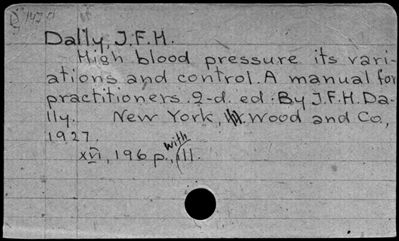 Dally, J.F.H.
High blood pressure its vari-
ations and control. A manual for
practitioners. 2-d. ed. By J.F.H. Da-
lly. New York, W. Wood and Co,
1927.
XVI, 196 p., with ill.